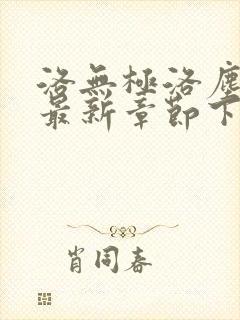 洛無極洛塵
最新章節下
肖同春